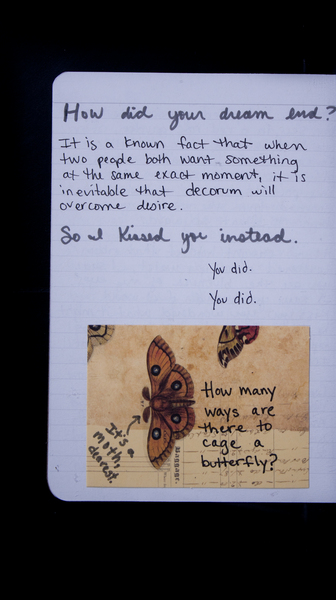 How did your dream end?
It is a known fact that when
two people both want something
at the same exact moment, it is
inevitable that decorum will
overcome desire.
So I kissed you instead.
You did.
You did.
How many
ways are
there to
cage a
butterfly?
It's a
moth,
dearest.